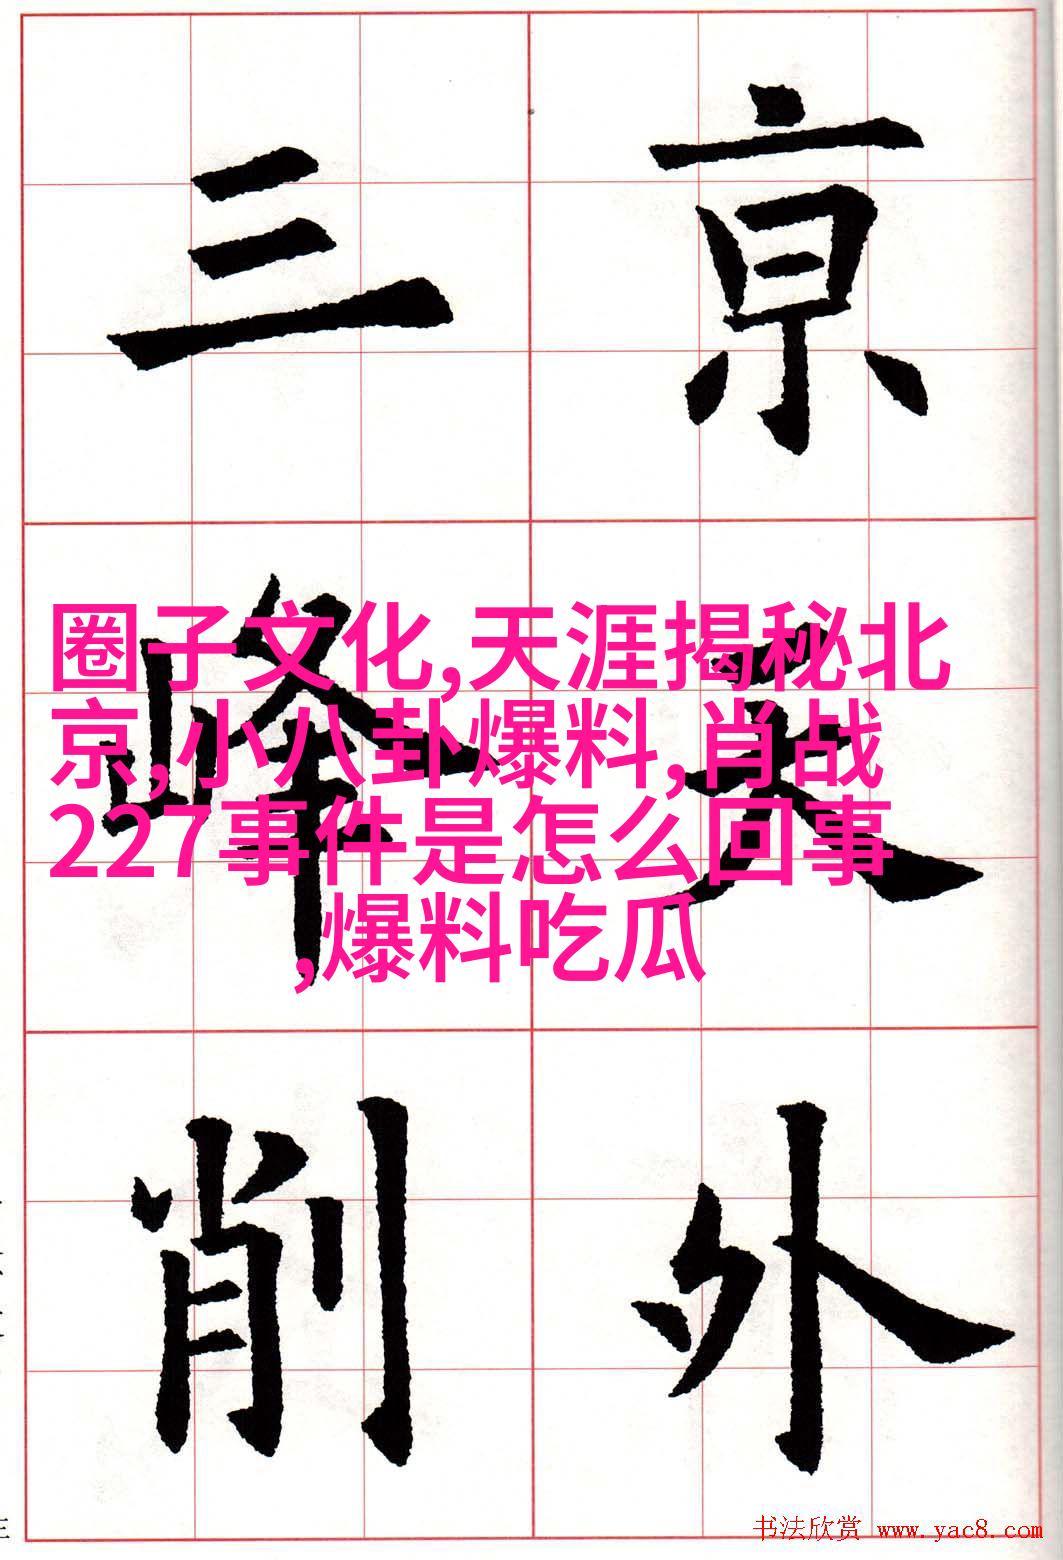 亰天外
三峰削
圈子文化,天涯揭秘北
京,小八卦爆料,肖战
227事件是怎么回事
,爆料吃瓜
书法欣赏 www.yac8.com